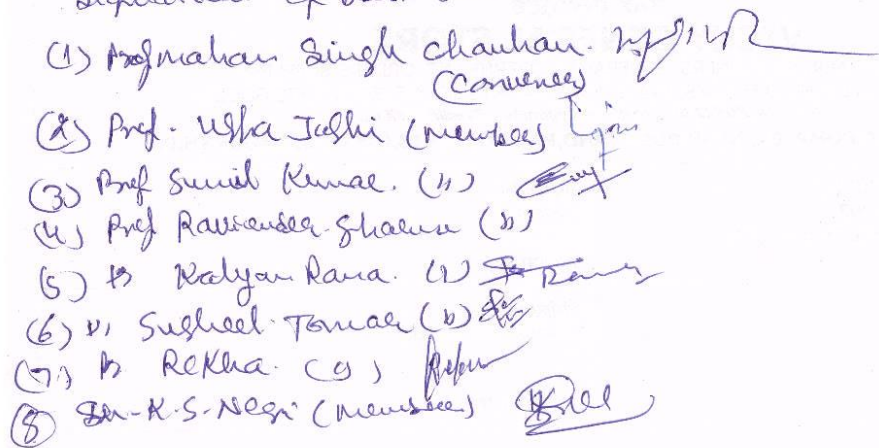 (1) Prof Mahan Singh Chauhan.
(Convener)
(2) Prof. Usha Joshi (member)
(3) Prof Sunil Kumar. (")
(4) Prof Ravinder Sharma (")
(5) " Kalyan Rana. (")
(6) " Susheel Tomar (")
(7) " Rekha. (")
(8) K.S. Negi (member)